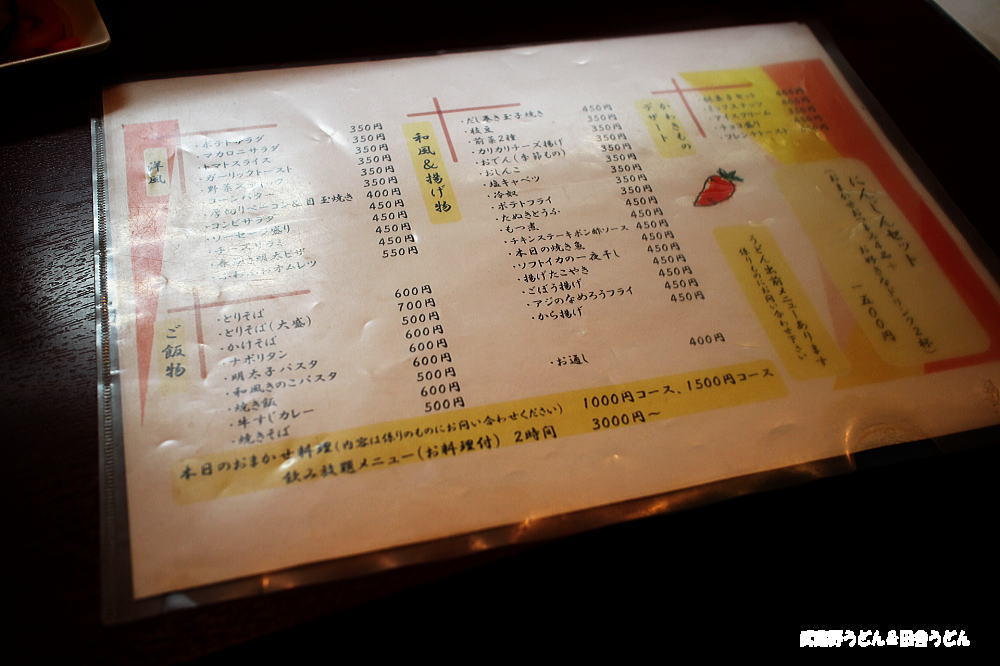 洋風
・ポテトサラダ 350円
・マカロニサラダ 350円
・トマトスライス 350円
・ガーリックトースト 350円
350円
400円
目玉焼き 450円
・コンビサラダ 450円
450円
450円
明太ピザ 550円
オムレツ
ご飯物
・とりそば 600円
・とりそば(大盛) 700円
・かけそば 500円
・ナポリタン 600円
・明太子パスタ 600円
・和風きのこパスタ 600円
・焼き飯 500円
・牛すじカレー 600円
・焼きそば 500円
和風&揚げ物
・だし巻き玉子焼き 450円
・枝豆 350円
・前菜2種 350円
・カリカリチーズ揚げ 350円
・おでん(季節もの) 350円
・おしんこ 350円
・塩キャベツ 350円
・冷奴 350円
・ポテトフライ 350円
・たぬきとうふ 450円
・もつ煮 450円
・チキンステーキポン酢ソース 450円
・本日の焼き魚 450円
・ソフトイカの一夜干し 450円
・揚げたこやき 450円
・ごぼう揚げ 450円
・アジのなめろうフライ 450円
・から揚げ
・お通し 400円
かわきもの
デザート
・ミックスナッツ
・アイスクリーム
・チョコ盛り
・フレンチトースト
にんじんセット
一五〇〇円
うどん出前メニューあります
係りものにお問い合わせ下さい
本日のおまかせ料理(内容は係りのものにお問い合わせください) 1000円コース、1500円コース
飲み放題メニュー(お料理付) 2時間 3000円~
武蔵野うどん&田舎うどん